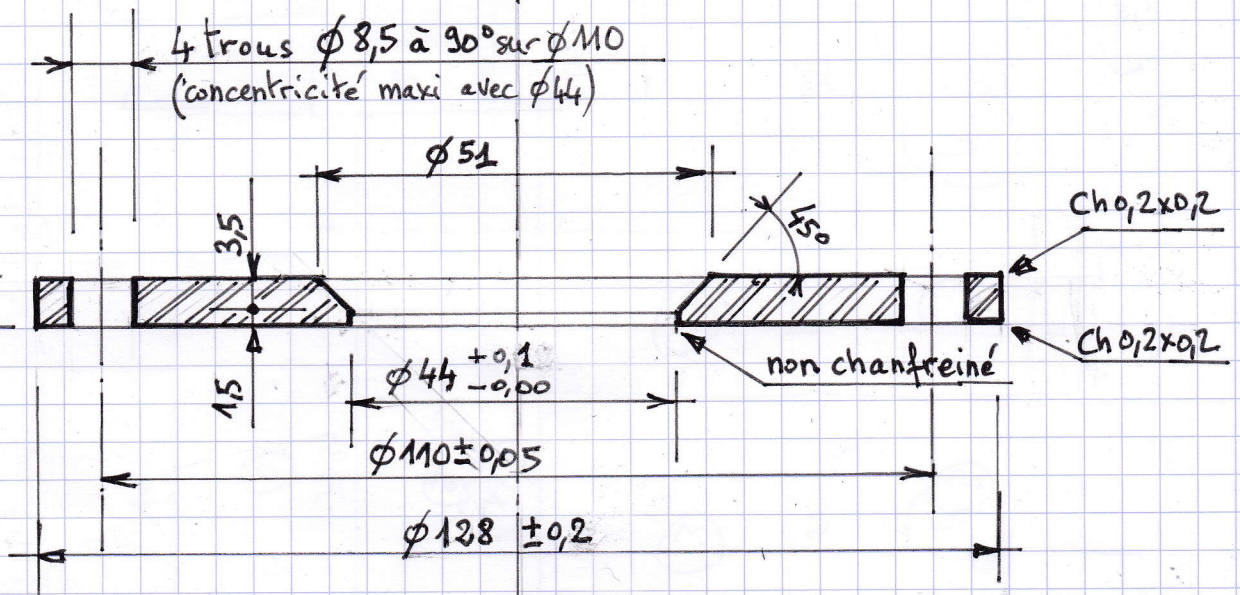 4 trous ϕ 8,5 à 90° sur ϕ110
(concentricité maxi avec ϕ44)
ϕ 51
3,5
45°
Ch 0,2x0,2
1,5
ϕ44 +0,1 -0,00
non chanfreiné
Ch 0,2x0,2
ϕ110±0,05
ϕ128 ±0,2